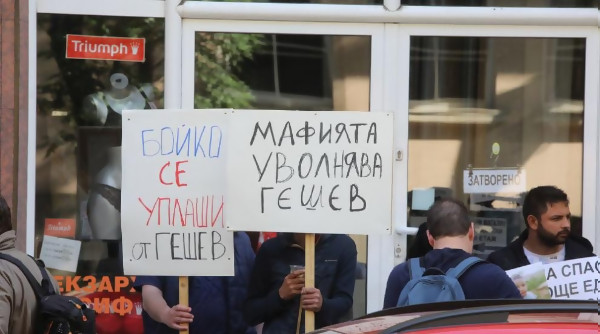 Triumph
БОЙКО
СЕ
УПЛАШИ
от ГЕШЕВ.
МАФИЯТА
УВОЛНЯВА
ГЕШЕВ
ЗАТВОРЕНО
ЗА СПАС
ОЩЕ ЕД
ЕКЗАР